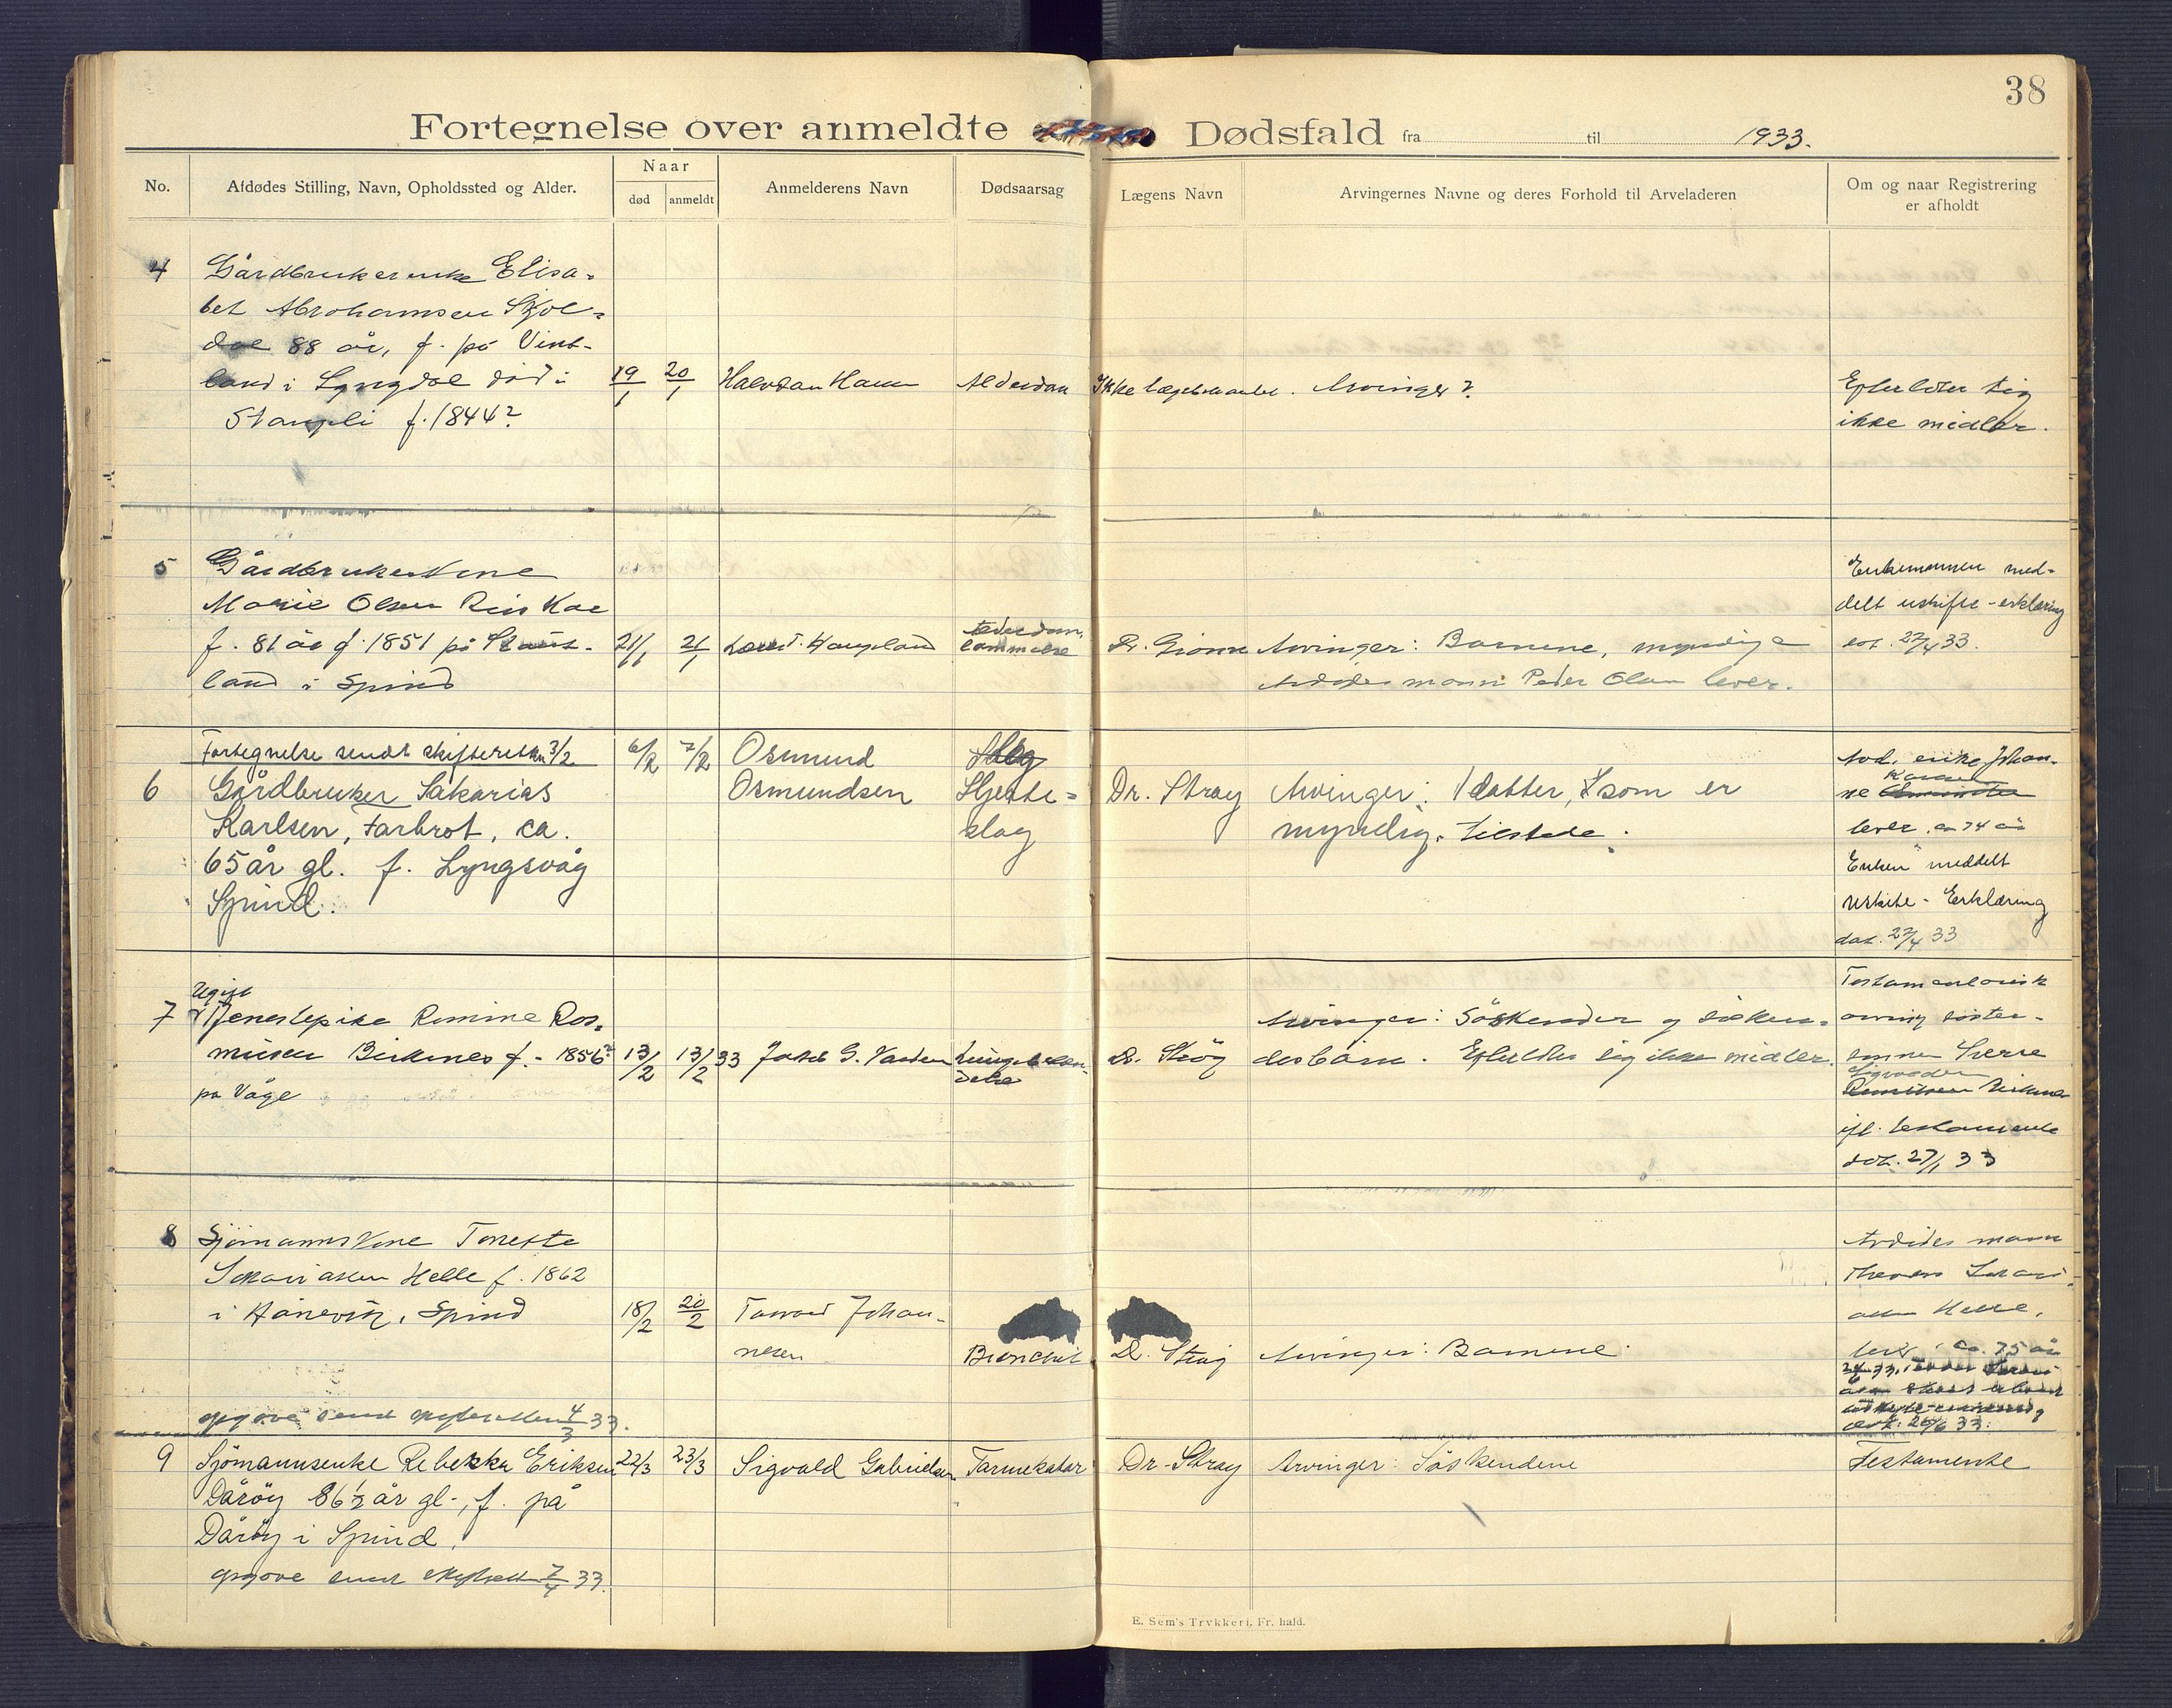 38
Fortegnelse over anmeldte Dødsfald fra til 1933.
No.
Afdødes Stilling, Navn, Opholdssted og Alder.
Naar
død
anmeldt
Anmelderens Navn
Dødsaarsag
Lægens Navn
Arvingernes Navne og deres Forhold til Arveladeren
Om og naar Registrering
er afholdt
4
Gårdbrukerenke Elisa-
bet Abrohamsen Skjol-
dal 88 år, f. på Vint-
land i Lyngdal død i
f. 1844?
19/1
20/1
Alderdom
Ikke lægebehandlet.
Arvinger?
Efterlater sig
ikke midler.
5
Gårdbrukerkone
Marie Olsen
f. 81 år f. 1851 på
land i Spind
21/1
21/1
Haugland
Alderdom,
lammelse
Dr.
Arvinger: Barnene, myndige
Avdødes mann Peder Olsen lever.
Enkemannen med-
delt uskifte-erklæring
dat. 27/4 33.
Fortegnelse sendt skifteretten 3/2
6
Gårdbruker Sakarias
Karlsen, Farbrot, ca.
65 år gl. f. Lyngsvåg
Spind.
6/2
7/2
Osmund
Osmundsen
Slag
Hjerte-
slag
Dr. Stray
Arvinger: 1 datter, som er
myndig. tilstede.
Avd. enke Johan-
ne
lever. ca 74 år
Enken meddelt
uskifte-Erklæring
dat. 27/4 33
Ugift
7
Tjenestepike Romine Ras-
musen Birkenes f. 1856?
på Våge
13/2
13/2 33
Jakob G. Varden
Lungebeten-
delse
Dr. Stray
Arvinger: Søskender og søsken-
desbarn. Efterlater sig ikke midler.
Testamentarisk
arving søster-
sønnen Sverre
Sigvardsen
Birkenes
ifl. testamente
dat. 27/1 33
8
Sjømannskone Tonette
Sakariasen Helle f. 1862
i Hånevik, Spind
18/2
20/2
Torvald Johan-
nesen
Bronchit
Dr. Stray
Arvinger: Barnene.
Avdødes mann
Thevers Sakari-
asen Helle.
lever, ca. 75 år
dat. 26/6 33.
opgave sendt skifteretten 4/3 33.
9
Sjømannsenke Rebekka Eriksen
Dårøy 86 1/2 år gl., f. på
Dårøy i Spind.
opgave sendt skifterett 7/4 33.
22/3
23/3
Sigvald Gabrielsen
Tarmkatar
Dr. Stray
Arvinger: Søskendene
Testamente
E. Sem's Trykkeri, Fr. hald.